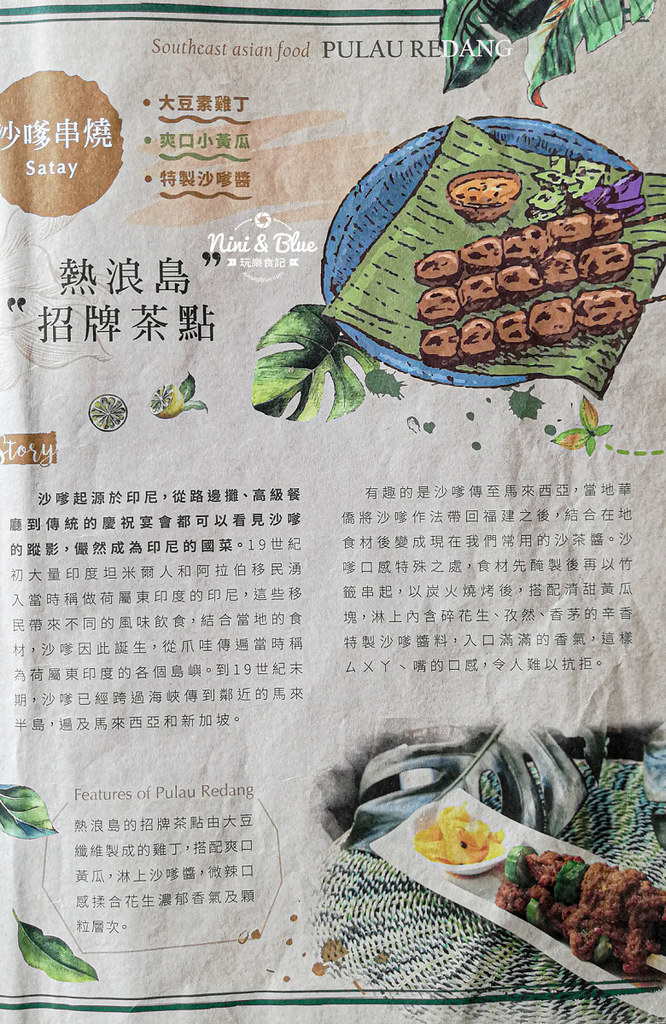 Southeast asian food PULAU REDANG
沙嗲串燒
Satay
• 大豆素雞丁
• 爽口小黃瓜
• 特製沙嗲醬
Nini & Blue
玩樂食記
熱浪島”
“招牌茶點
Story
沙嗲起源於印尼，從路邊攤、高級餐
廳到傳統的慶祝宴會都可以看見沙嗲
的蹤影，儼然成為印尼的國菜。19世紀
初大量印度坦米爾人和阿拉伯移民湧
入當時稱做荷屬東印度的印尼，這些移
民帶來不同的風味飲食，結合當地的食
材，沙嗲因此誕生，從爪哇傳遍當時稱
為荷屬東印度的各個島嶼。到19世紀末
期，沙嗲已經跨過海峽傳到鄰近的馬來
半島，遍及馬來西亞和新加坡。
有趣的是沙嗲傳至馬來西亞，當地華
僑將沙嗲作法帶回福建之後，結合在地
食材後變成現在我們常用的沙茶醬。沙
嗲口感特殊之處，食材先醃製後再以竹
籤串起，以炭火燒烤後，搭配清甜黃瓜
塊，淋上內含碎花生、孜然、香茅的辛香
特製沙嗲醬料，入口滿滿的香氣，這樣
ㄙㄨㄚˋ嘴的口感，令人難以抗拒。
Features of Pulau Redang
熱浪島的招牌茶點由大豆
纖維製成的雞丁，搭配爽口
黃瓜，淋上沙嗲醬，微辣口
感揉合花生濃郁香氣及顆
粒層次。